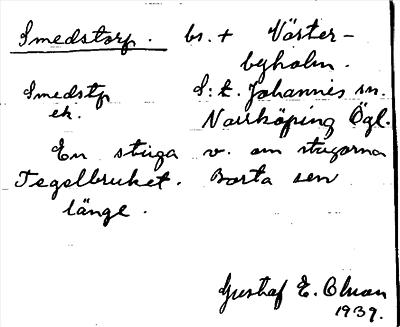 Smedstorp. br. + Väster-
byholm.
Smedstp S:t. Johannis sn.
ek. Norrköping Ögl.
En stuga v. om stugorna
Tegelbruket. Borta sen
länge.
Gustaf E. Olson
1939.